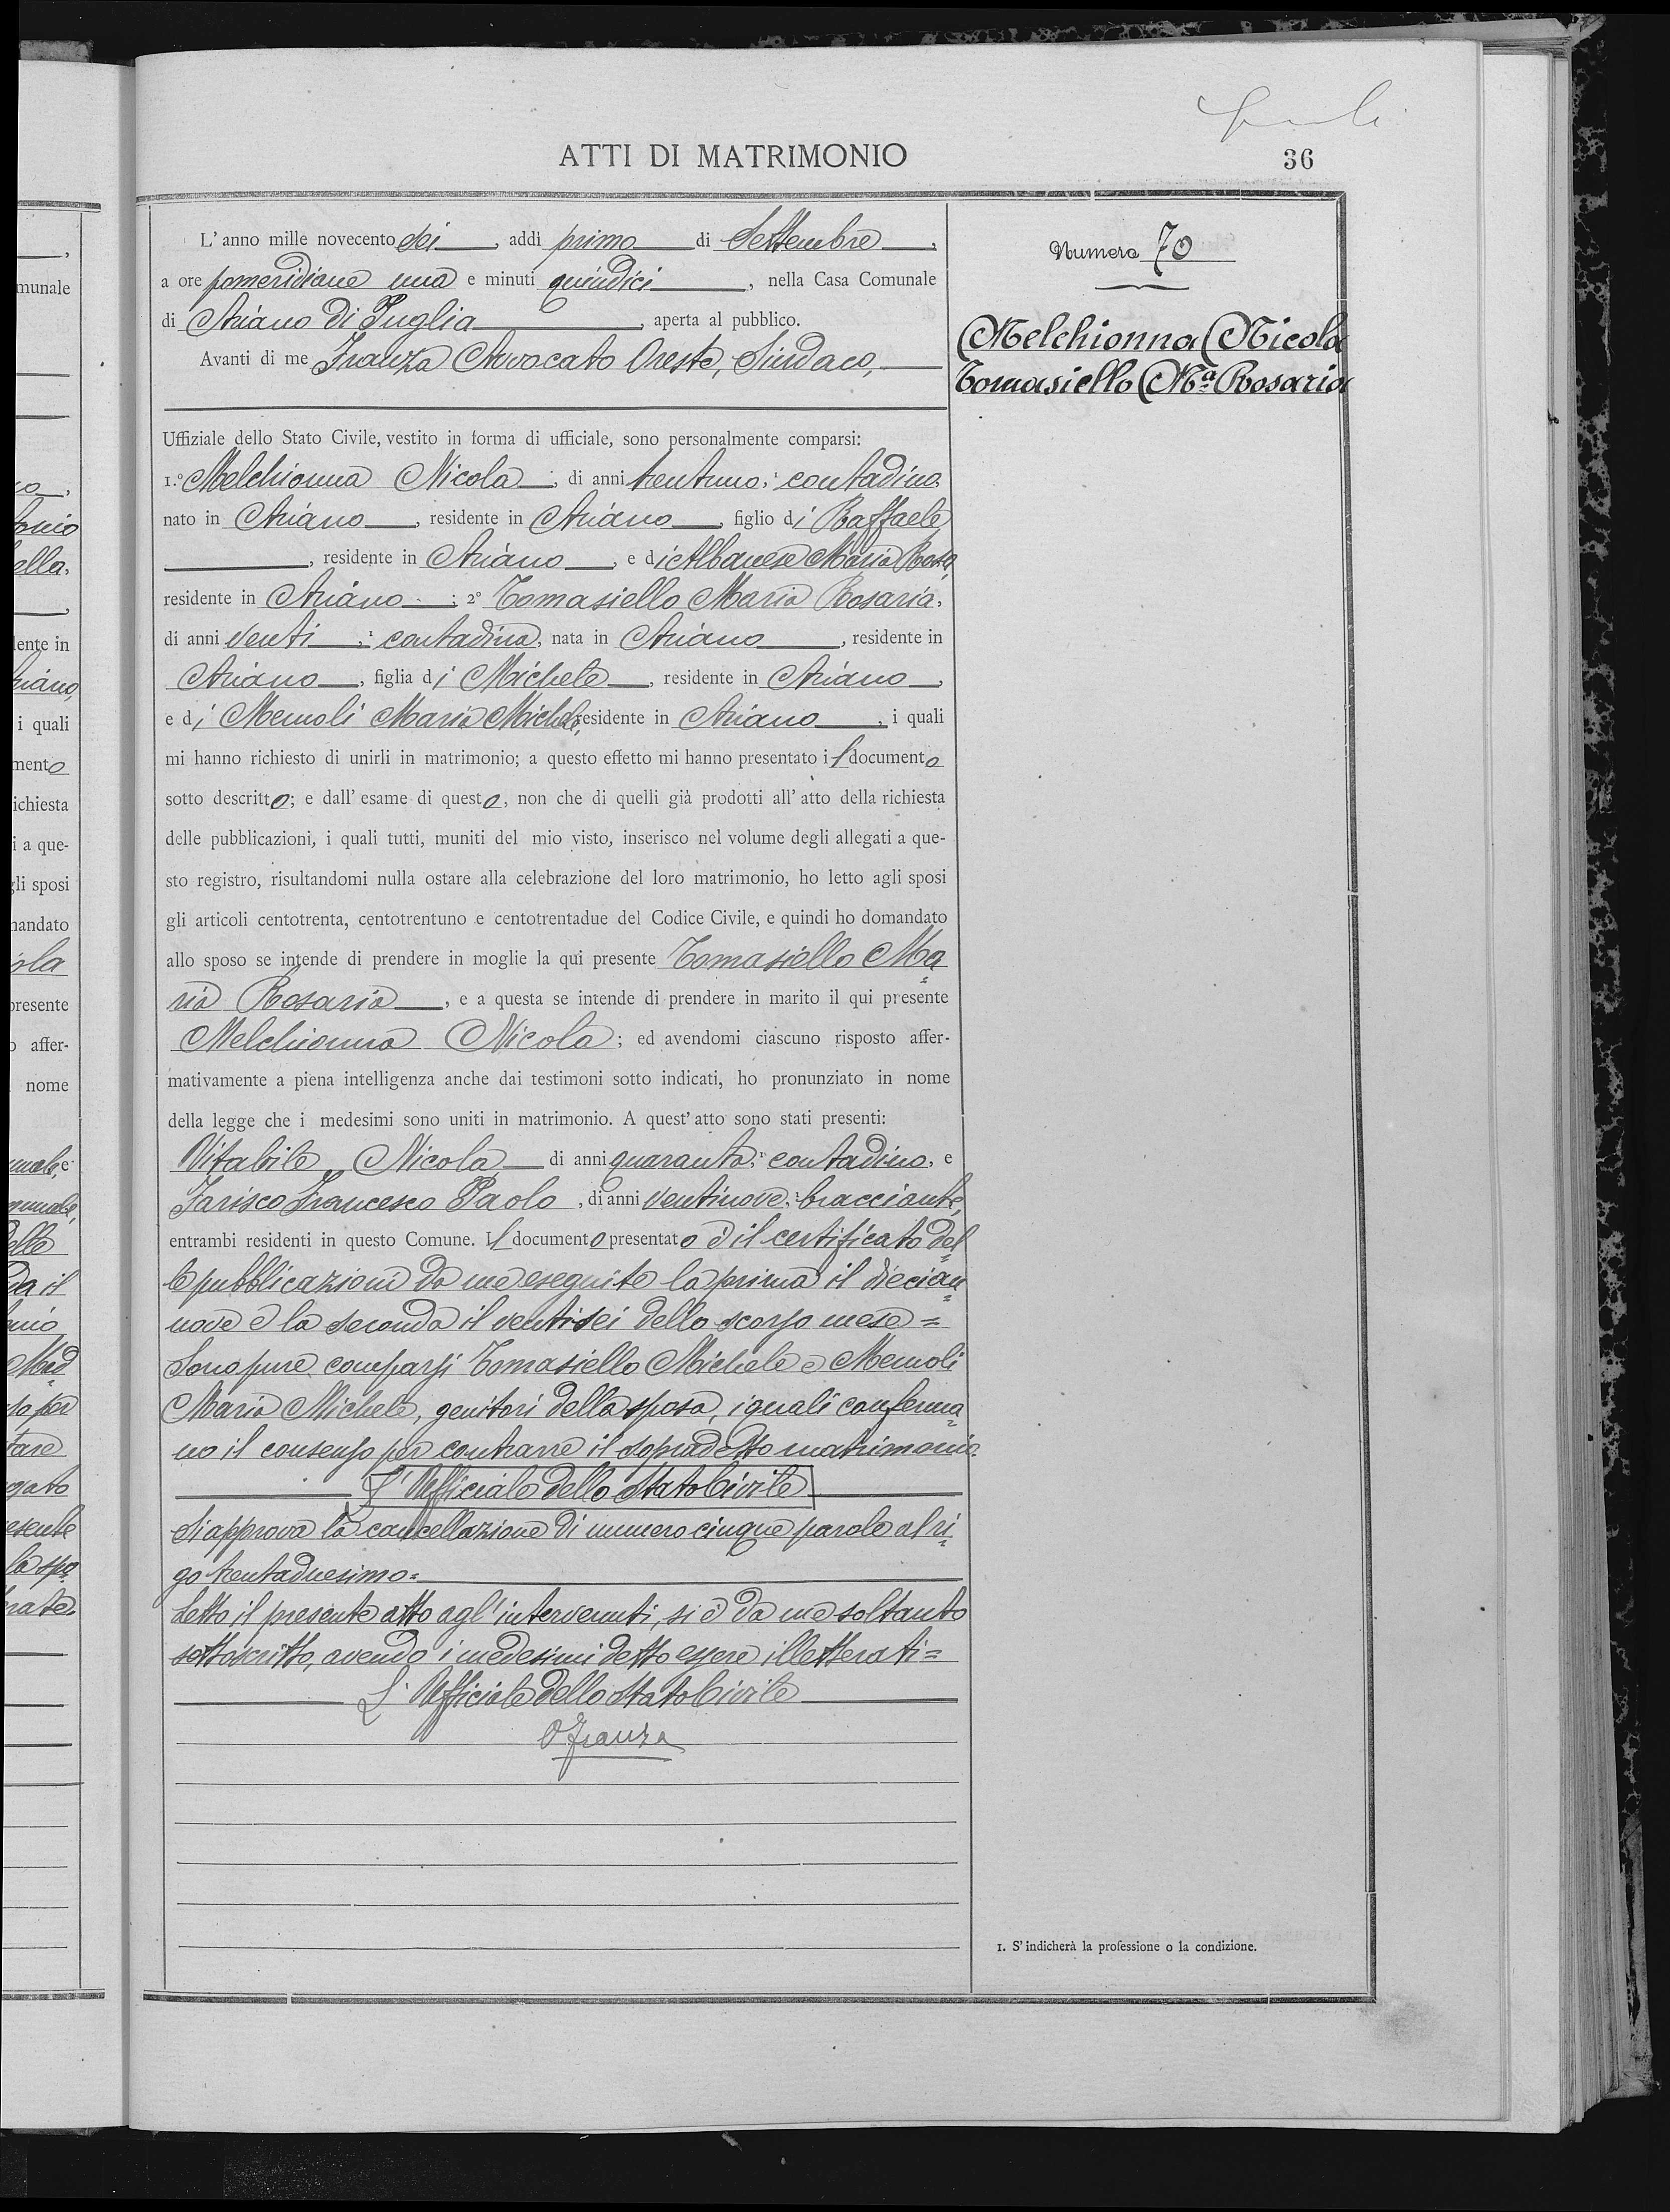 ATTI DI MATRIMONIO
36
L'anno mille novecento sei, addì primo di Settembre,
a ore pomeridiane una e minuti quindici, nella Casa Comunale
di Ariano di Puglia, aperta al pubblico.
Avanti di me Franza Avvocato Oreste, Sindaco,
Uffiziale dello Stato Civile, vestito in forma di ufficiale, sono personalmente comparsi:
1.º Melchionna Nicola, di anni trentuno, contadino,
nato in Ariano, residente in Ariano, figlio di Raffaele
, residente in Ariano, e di Albanese Maria Rosa,
residente in Ariano; 2º Tomasiello Maria Rosaria,
di anni venti, contadina, nata in Ariano, residente in
Ariano, figlia di Michele, residente in Ariano,
e di Memoli Maria Michele, residente in Ariano, i quali
mi hanno richiesto di unirli in matrimonio; a questo effetto mi hanno presentato il documento
sotto descritto; e dall'esame di questo, non che di quelli già prodotti all'atto della richiesta
delle pubblicazioni, i quali tutti, muniti del mio visto, inserisco nel volume degli allegati a que-
sto registro, risultandomi nulla ostare alla celebrazione del loro matrimonio, ho letto agli sposi
gli articoli centotrenta, centotrentuno e centotrentadue del Codice Civile, e quindi ho domandato
allo sposo se intende di prendere in moglie la qui presente Tomasiello Ma=
ria Rosaria, e a questa se intende di prendere in marito il qui presente
Melchionna Nicola; ed avendomi ciascuno risposto affer-
mativamente a piena intelligenza anche dai testimoni sotto indicati, ho pronunziato in nome
della legge che i medesimi sono uniti in matrimonio. A quest'atto sono stati presenti:
Vitabile Nicola, di anni quaranta, contadino, e
Jarisco Francesco Paolo, di anni ventinove, bracciante,
entrambi residenti in questo Comune. Il documento presentato è il certificato del=
le pubblicazioni da me eseguite la prima il dician=
nove e la seconda il ventisei dello scorso mese =
Sono pure comparsi Tomasiello Michele e Memoli
Maria Michele, genitori della sposa, i quali conferma=
no il consenso per contrarre il sopradetto matrimonio.
L'Ufficiale dello Stato Civile
Si approva la cancellazione di numero cinque parole al ri=
go trentaduesimo=
Letto il presente atto agl'intervenuti, si è da me soltanto
sottoscritto, avendo i medesimi detto essere illetterati=
L'Ufficiale dello Stato Civile
O Franza
Numero 70
Melchionna Nicola
Tomasiello Mª Rosaria
1. S'indicherà la professione o la condizione.